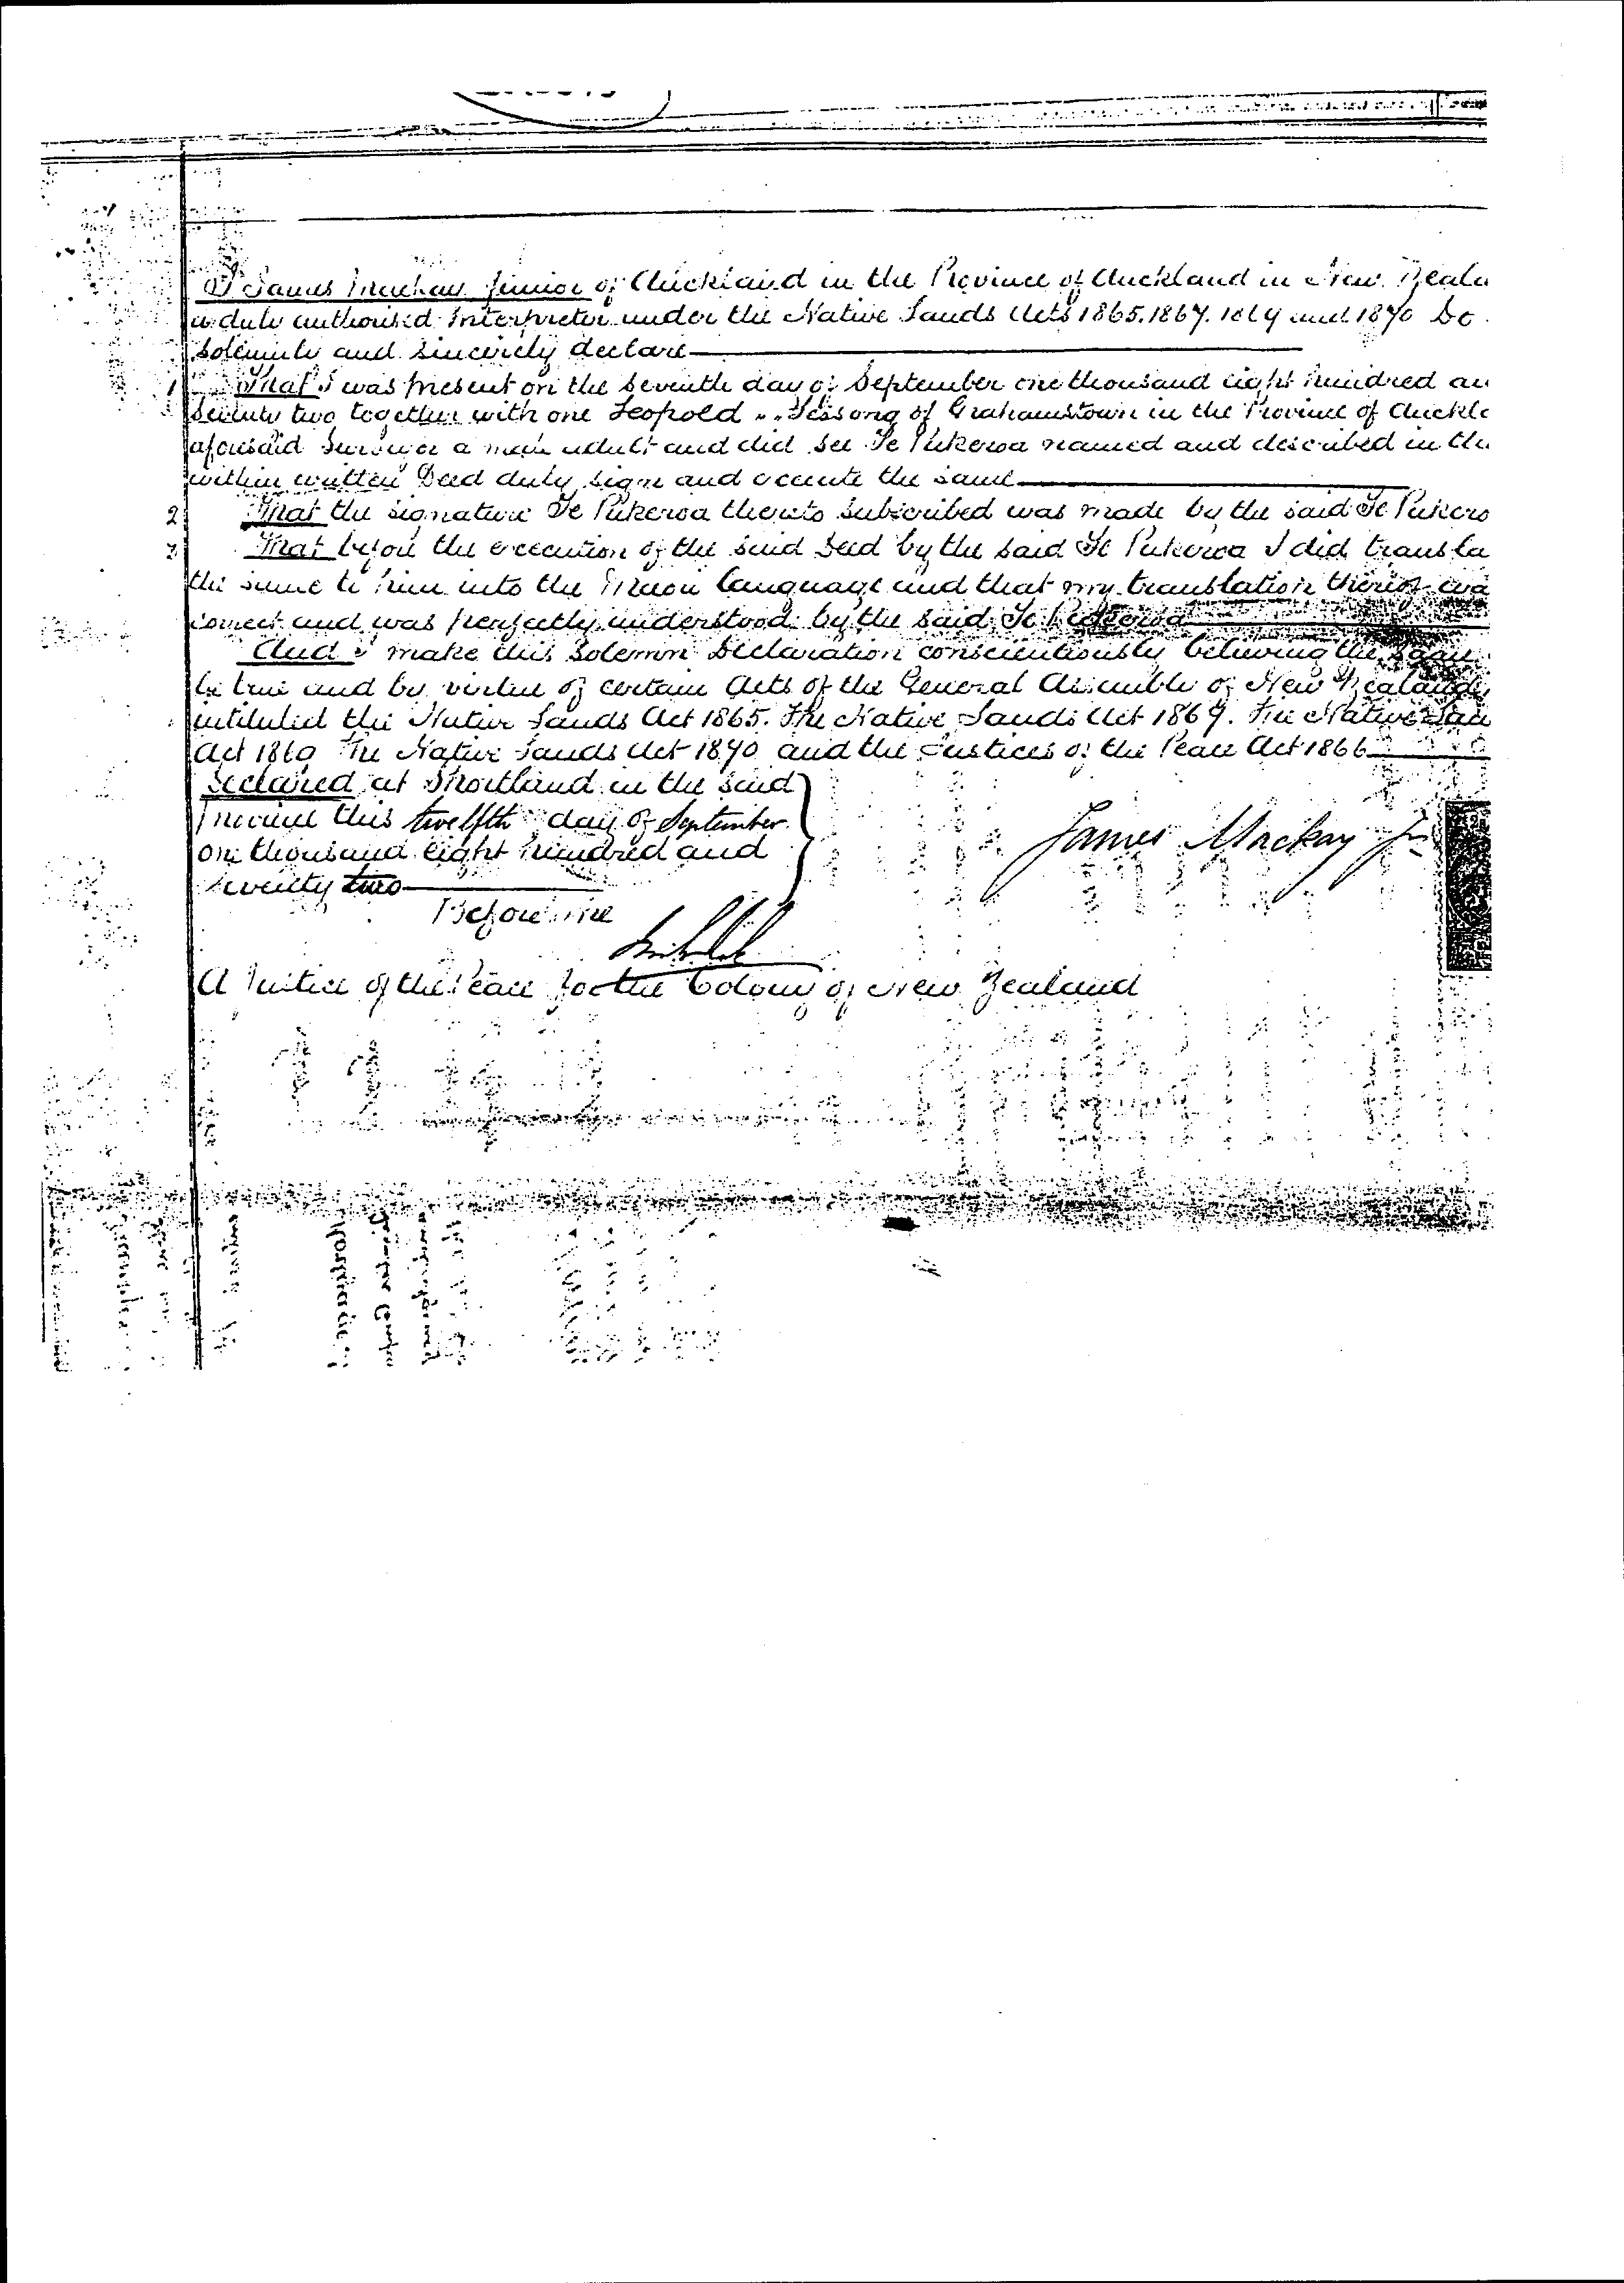 I James Mackay Junior of Auckland in the Province of Auckland in New Zeala
a duly authorised Interpreter under the Native Lands Acts 1865. 1867. 1869 and 1870 Do
solemnly and sincerely declare
1 That I was present on the seventh day of September one thousand eight hundred an
seventy two together with one Leopold of Grahamstown in the Province of Auckla
aforesaid Surveyor a male adult and did see Te Pukeroa named and described in the
within written Deed duly sign and execute the same
2 That the signature Te Pukeroa thereto subscribed was made by the said Te Pukero
3 That before the execution of the said Deed by the said Te Pukeroa I did transla
the same to him into the Maori language and that my translation thereof was
correct and was perfectly understood by the said Te Pukeroa
And I make this Solemn Declaration conscientiously believing the same
be true and by virtue of certain Acts of the General Assembly of New Zealand
intituled the Native Lands Act 1865. The Native Lands Act 1867. The Native Lan
Act 1869 The Native Lands Act 1870 and the Justices of the Peace Act 1866
Declared at Shortland in the said
Province this twelfth day of September
one thousand eight hundred and
seventy two
James Mackay Jr
Before me
A Justice of the Peace for the Colony of New Zealand